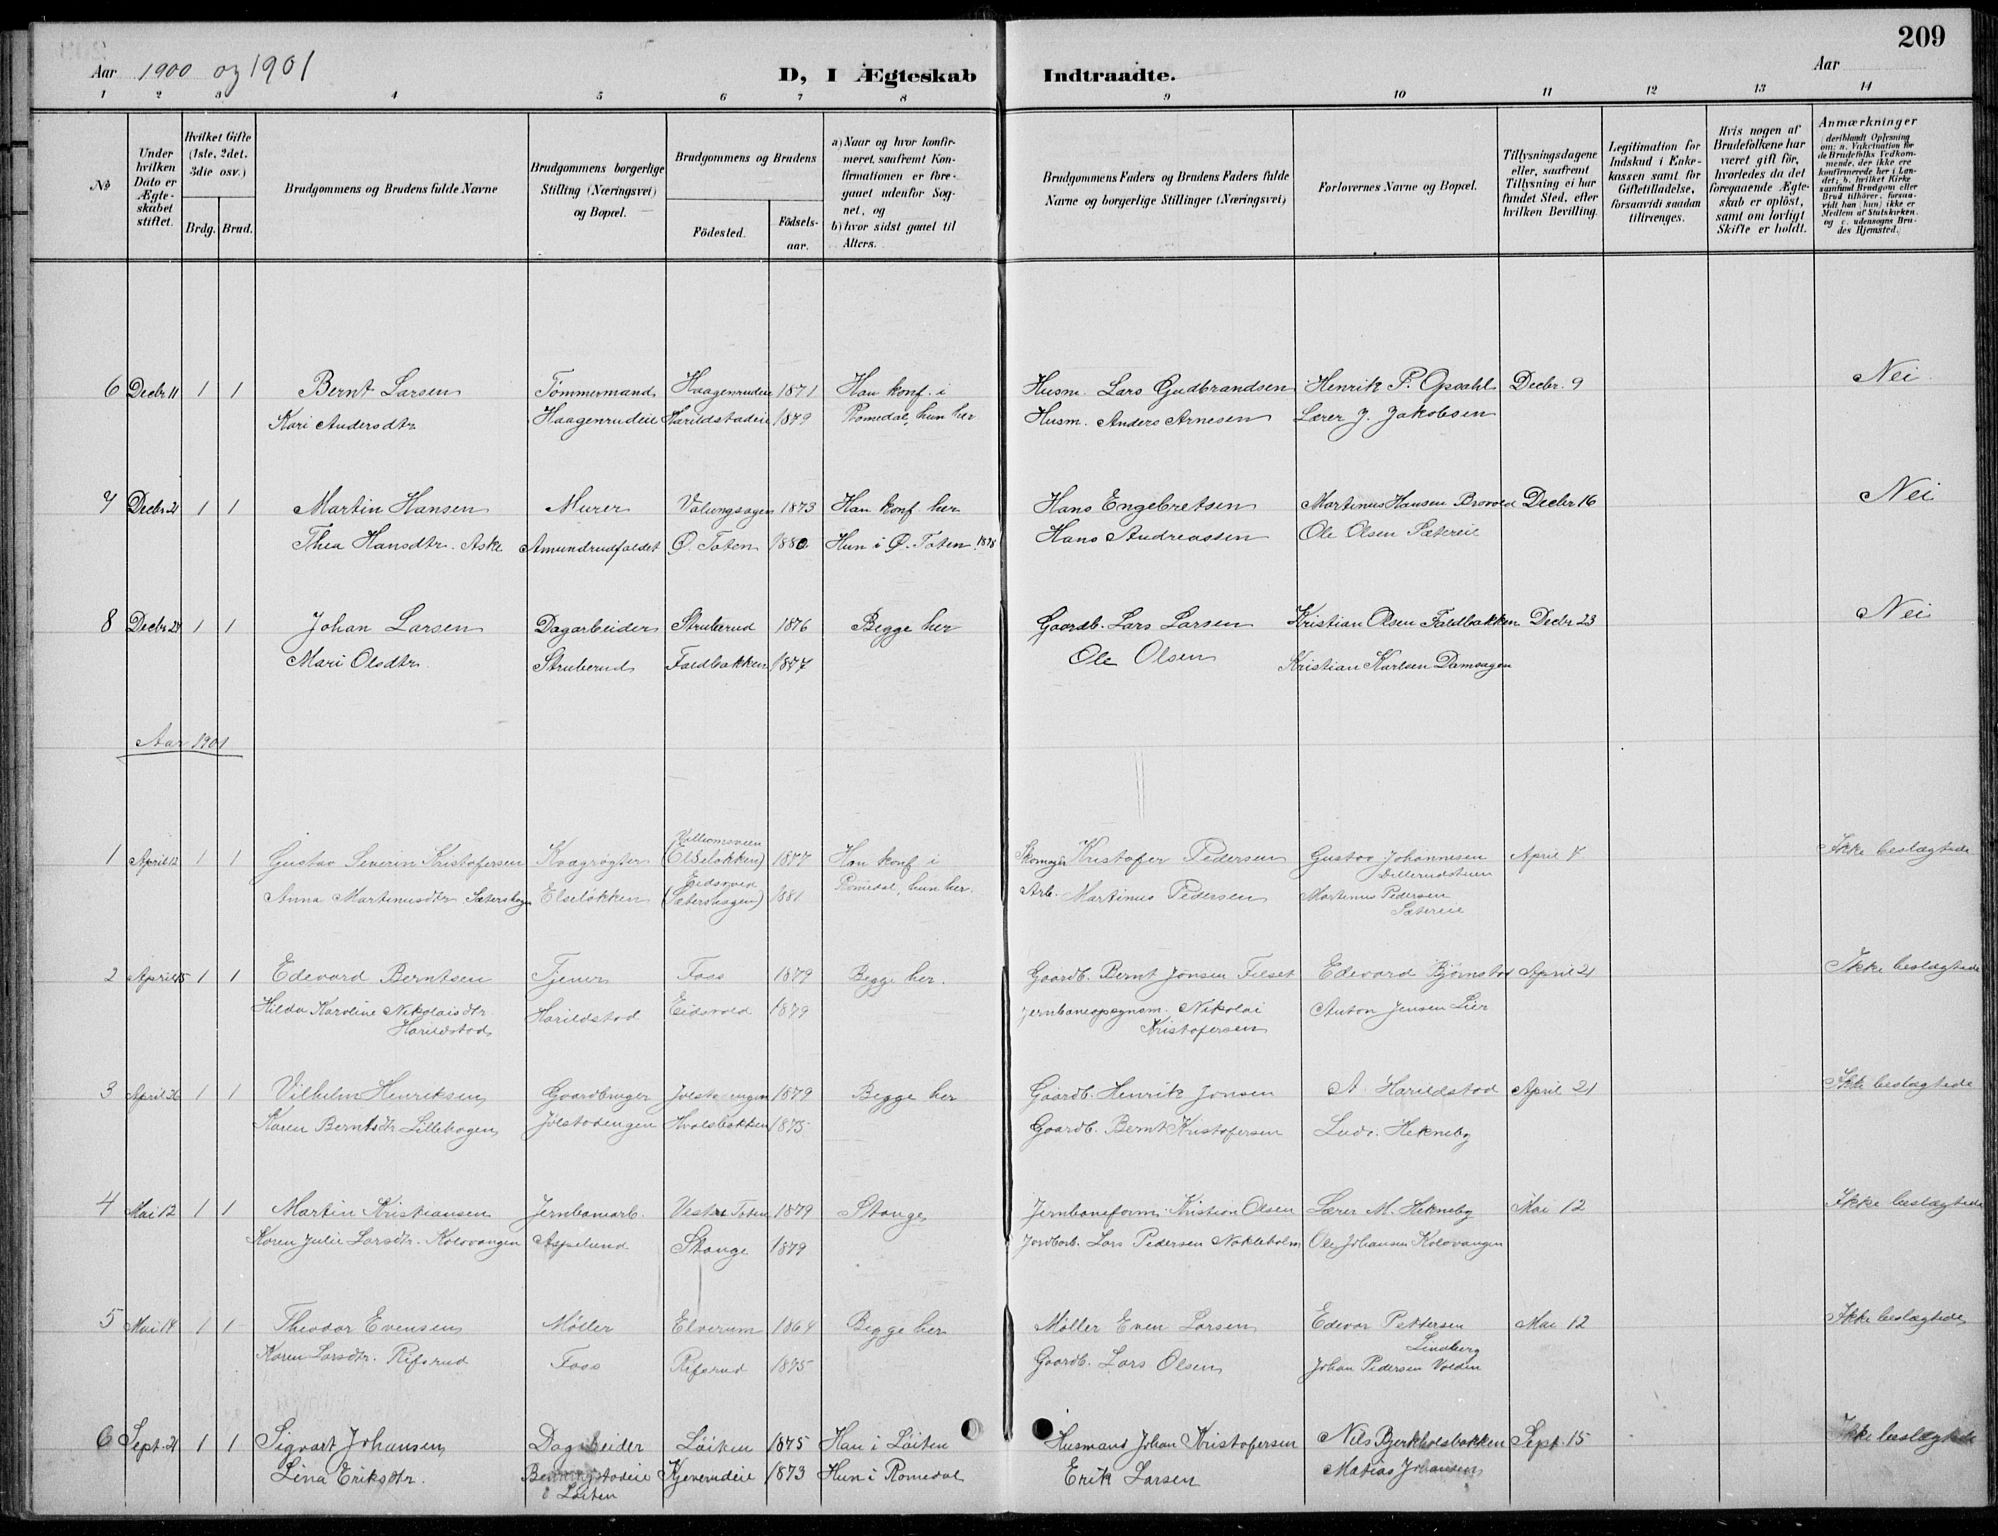 209
Aar 1900 og 1901 D, I Ægteskab Indtraadte. Aar
1 2 3 4 5 6 7 8 9 10 11 12 13 14
No
Under hvilken Dato er Ægteskabet stiftet.
Hvilket Gifte (1ste, 2det, 3die osv.)
Brdg. Brud.
Brudgommens og Brudens fulde Navne
Brudgommens borgerlige Stilling (Næringsvei) og Bopæl.
Brudgommens og Brudens
Födested. Födsels-aar.
a) Naar og hvor konfirmeret, saafremt Konfirmationen er foregaaet udenfor Sognet, og
b) hvor sidst gaaet til Alters.
Brudgommens Faders og Brudens Faders fulde Navne og borgerlige Stillinger (Næringsvei)
Forlovernes Navne og Bopæl.
Tillysningsdagene eller, saafremt Tillysning ei har fundet Sted, efter hvilken Bevilling.
Legitimation for Indskud i Enkekassen samt for Giftetilladelse, forsaavidt saadan tiltrænges.
Hvis nogen af Brudefolkene har været gift för, hvorledes da det foregaaende Ægteskab er oplöst, samt om lovligt Skifte er holdt.
Anmærkninger
deriblandt Oplysning om: a. Vakcination for de Brudefolks Vedkommende, der ikke ere konfirmerede her i Landet; b. hvilket Kirkesamfund Brudgom eller Brud tilhörer, forsaavidt han (hun) ikke er Medlem af Statskirken, og c. udensogns Brudes Hjemsted.
6 Decbr 11 1 1 Bernt Larsen Tømmermand Haagenrudeie 1871 Han konf. i Husm. Lars Gudbrandsen Henrik P. Opsahl Decbr. 9 Nei
Kari Andersdtr Haagenrudeie Harildstadeie 1879 Romedal, hun her Husm. Anders Arnesen Lærer J. Jakobsen
7 Decbr 21 1 1 Martin Hansen Murer Valungsagen 1873 Han konf her Hans Engebretsen Martinus Hansen Brovold Decbr 16 Nei
Thea Hansdtr. Aske Amundrudfaldet Ø. Toten 1880 Hun i Ø. Toten Hans Andreassen Ole Olsen Sætereie
8 Decbr 28 1 1 Johan Larsen Dagarbeider Struberud 1876 Begge her Gaardb. Lars Larsen Kristian Olsen Faldbakken Decbr 23 Nei
Mari Olsdtr. Struberud Faldbakken 1877 Ole Olsen Kristian Karlsen Damsagen
Aar 1901
Villiomsveien
1 April 12 1 1 Gustav Severin Kristofersen Kvægrøgter (Elseløkken) 1877 Han konf i Skomager Kristofer Pedersen Gustav Johannesen April 7 Ikke beslægtede
Dillerudstuen
Eidsvold
Anna Martinusdtr Sætershagen Elseløkken (Sætershagen) 1881 Romedal, hun her. Arb. Martinus Pedersen Martinus Pedersen
Sætereie
2 April 1 1 Edevard Berntsen Tjener Foss 1879 Begge her. Gaardb. Bernt Jonsen Filset Edevard Bjørnstad April 21 Ikke beslægtede
Hilda Karoline Nikolaisdtr. Harildstad Eidsvold 1879 Jernbaneopsynsm. Nikolai Anton Jensen Lier
Harildstad Kristofersen
3 April 26 1 1 Vilhelm Henriksen Gaardbruger Jølstadengen 1879 Begge her Gaardb. Henrik Jonsen A. Harildstad April 21 Ikke beslægtede
Karen Berntsdtr Lillehagen Jølstadengen Hvolsbakken 1875 Gaardb. Bernt Kristofersen Ludv. Hekneby
4 Mai 12 1 1 Martin Kristiansen Jernbanearb. Vestre Toten 1879 Stange Jernbaneform. Kristian Olsen Lærer M. Hekneby Mai 12 Ikke beslægtede
Karen Julie Larsdtr. Kolovangen Aspelund Stange 1879 Jordbarb. Lars Pedersen Nokleholm Ole Johansen Kolovangen
5 Mai 14 1 1 Theodor Evensen Møller Elverum 1864 Begge her Møller Even Larsen Edevar Pettersen Mai 12 Ikke beslægtede
Lindberg
Karen Larsdtr. Rifsrud Foss Rifsrud 1875 Gaardb. Lars Olsen Johan Pedersen Volden
6 Sept. 21 1 1 Sigvart Johansen Dagarbeider Løiten 1875 Han i Løiten Husmand Johan Kristofersen Nils Bjerkholsbakken Sept. 15 Ikke beslægtede
Lina Eriksdtr. Kjeverudeie 1873 Hun i Romedal Erik Larsen Matias Johansen
i Løiten